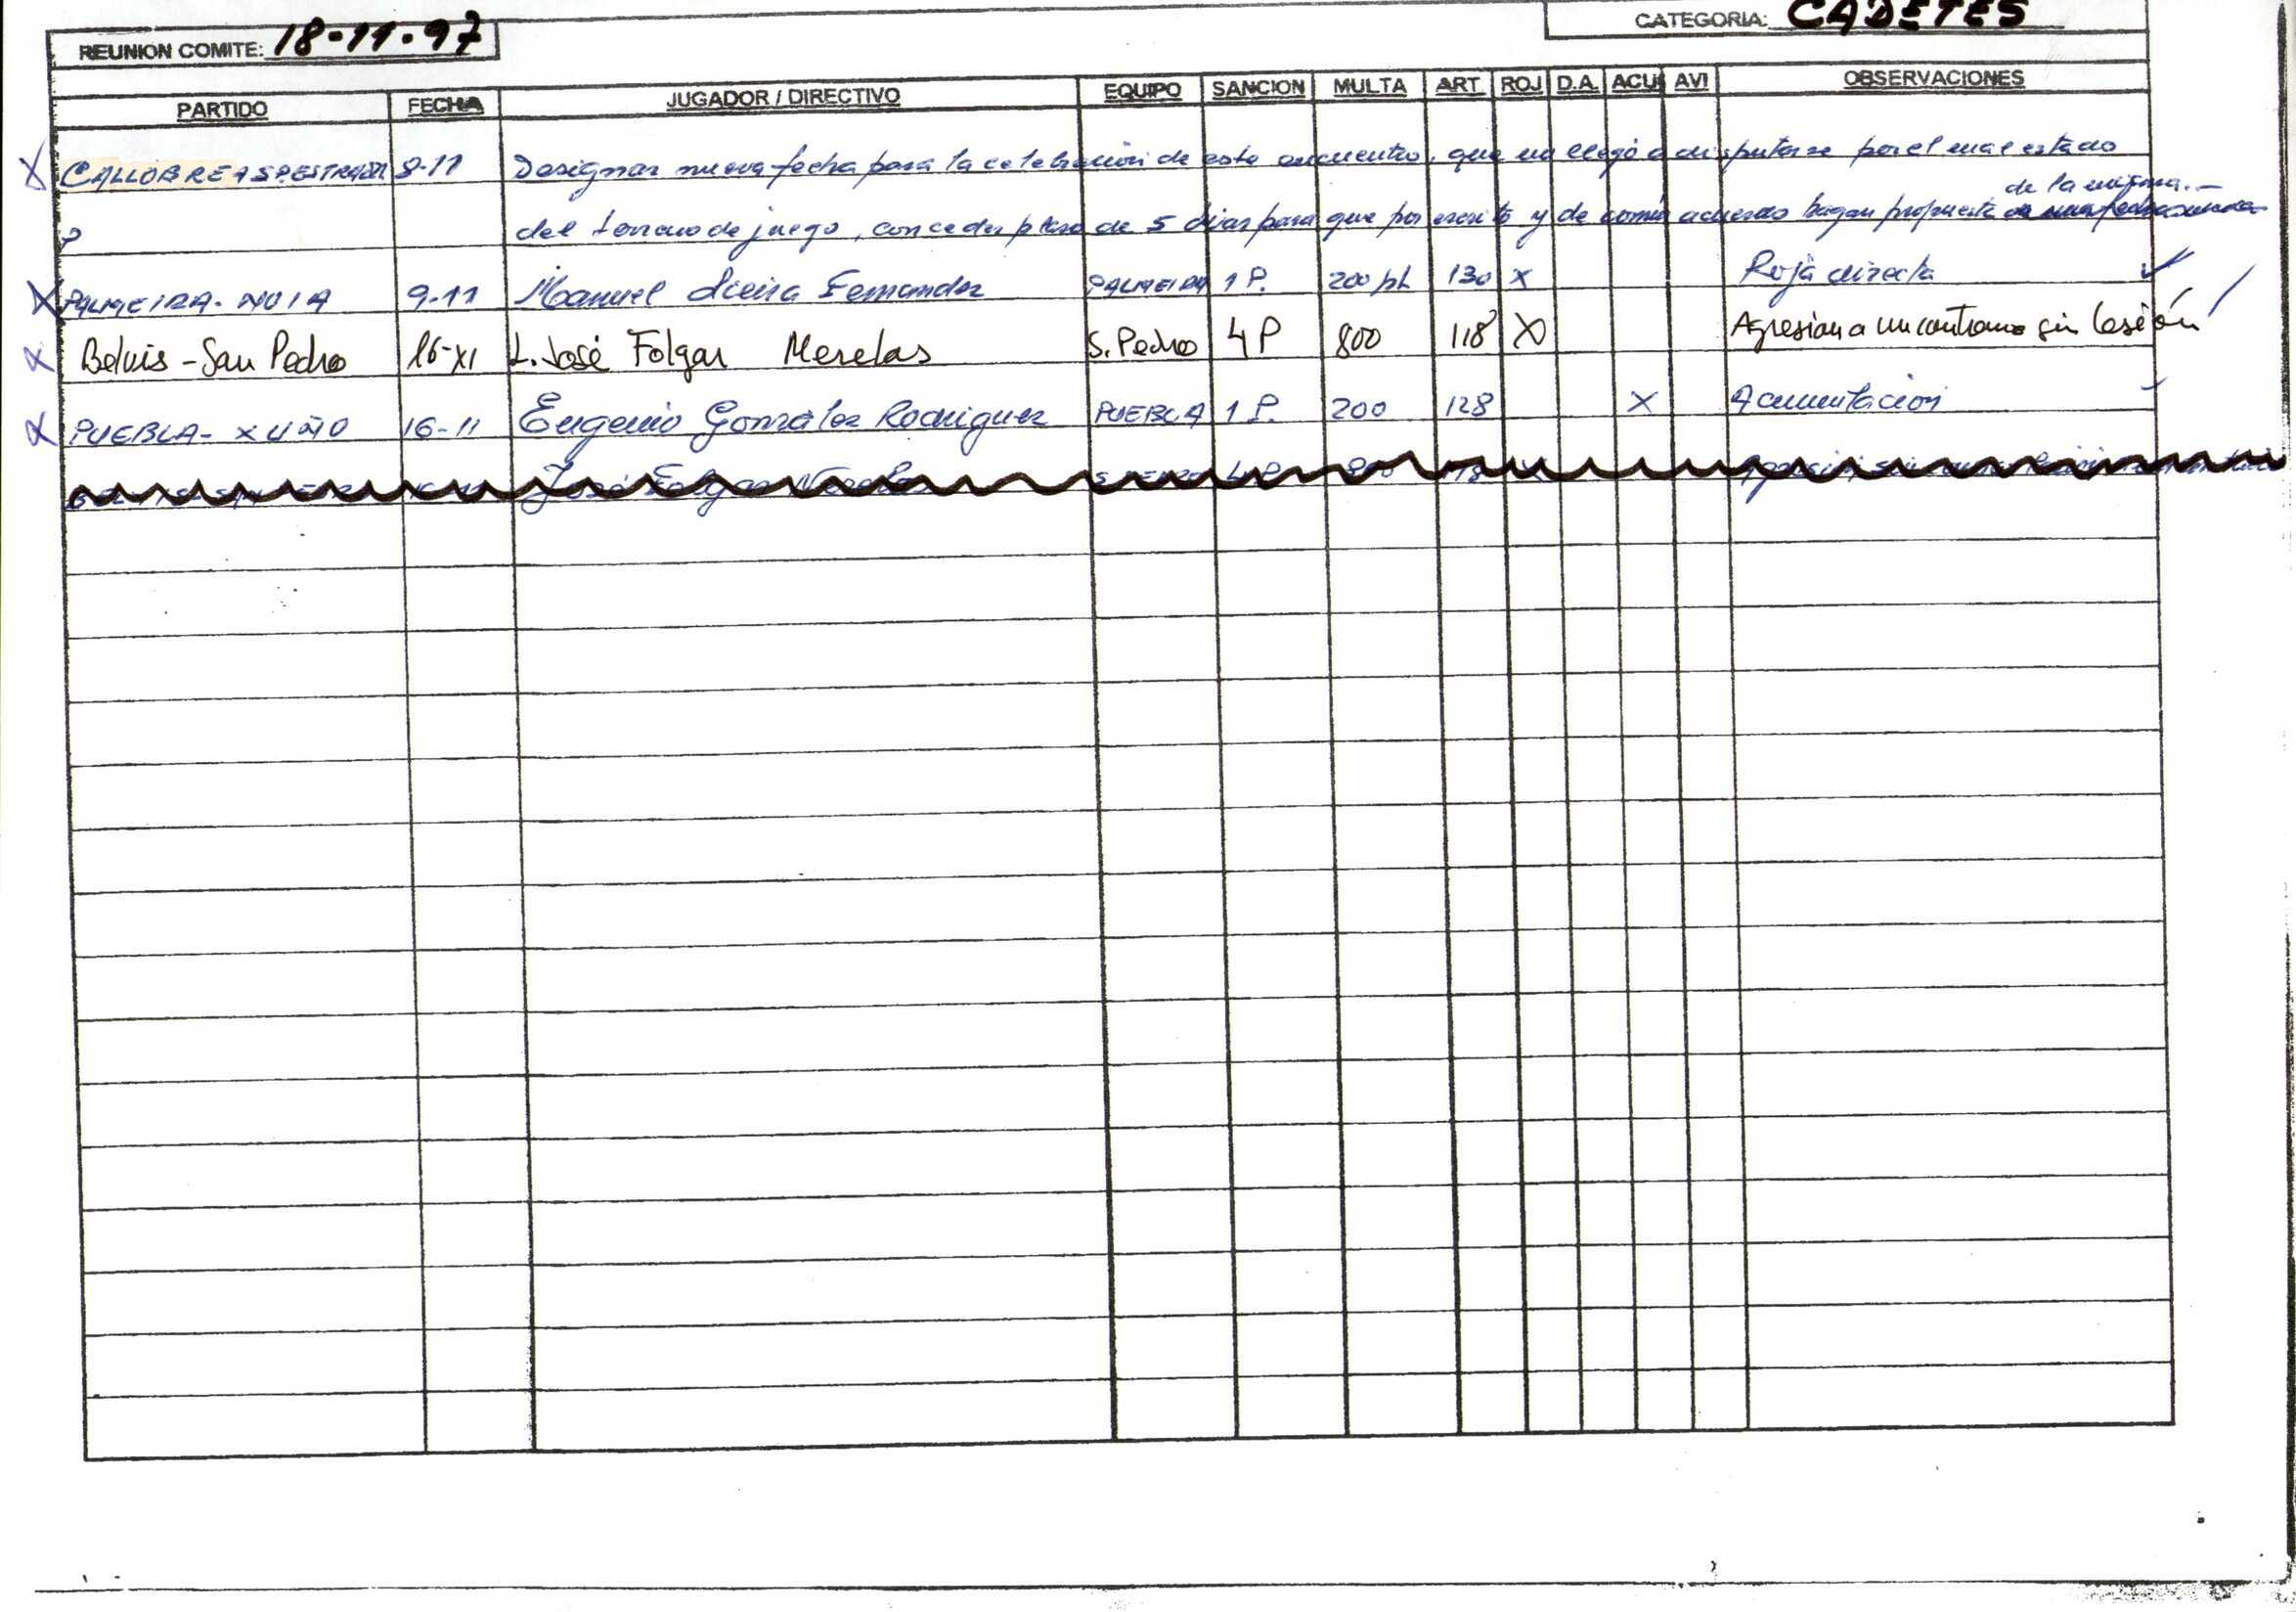 REUNION COMITE: 18-11-97 CATEGORIA: CADETES
PARTIDO FECHA JUGADOR / DIRECTIVO EQUIPO SANCION MULTA ART ROJ D.A. ACU AVI OBSERVACIONES
X CALLOBRE 8-11 Designar nueva fecha para la celebración de este encuentro, que no llegó a disputarse por el mal estado
de la misma.-
del terreno de juego, conceder plazo de 5 dias para que por escrito y de común acuerdo hagan propuesta
X PALMEIRA-NOIA 9-11 Manuel Fernandez PALMEIRA 1 P. 200 pts 130 X Roja directa
Belvis-San Pedro 16-XI L. José Folgar Merelas S. Pedro 4 P 800 118 X Agresion a un contrario sin lesión
PUEBLA-XUÑO 16-11 Eugenio González Rodriguez PUEBLA 1 P. 200 128 X Acumulación
José Folgar